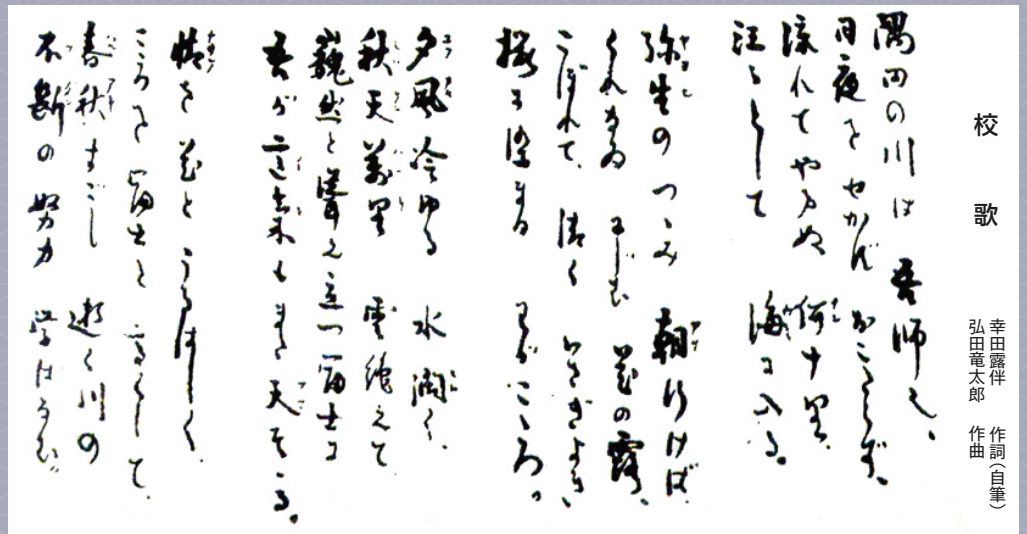 校歌
幸田露伴 作詞(自筆)
弘田竜太郎 作曲
隅田の川は 吾師
日夜を せかず おこたらず。
流れてやまぬ 何十里
して 海に入る。
弥生のつゝみ 朝行けば
くれなゐ にじむ 花の露、
こぼれて、清く いさぎよき、
桜に染まる わがこころ。
夕風冷ゆる 水濶く、
秋天萬里 雲絶えて
巍然と聳え立つ富士に
吾が も 天そゝる。
情を花と うるはしく、
こころを 富士と 高くして、
春秋すごし 逝く川の
不断の努力 学ばなむ